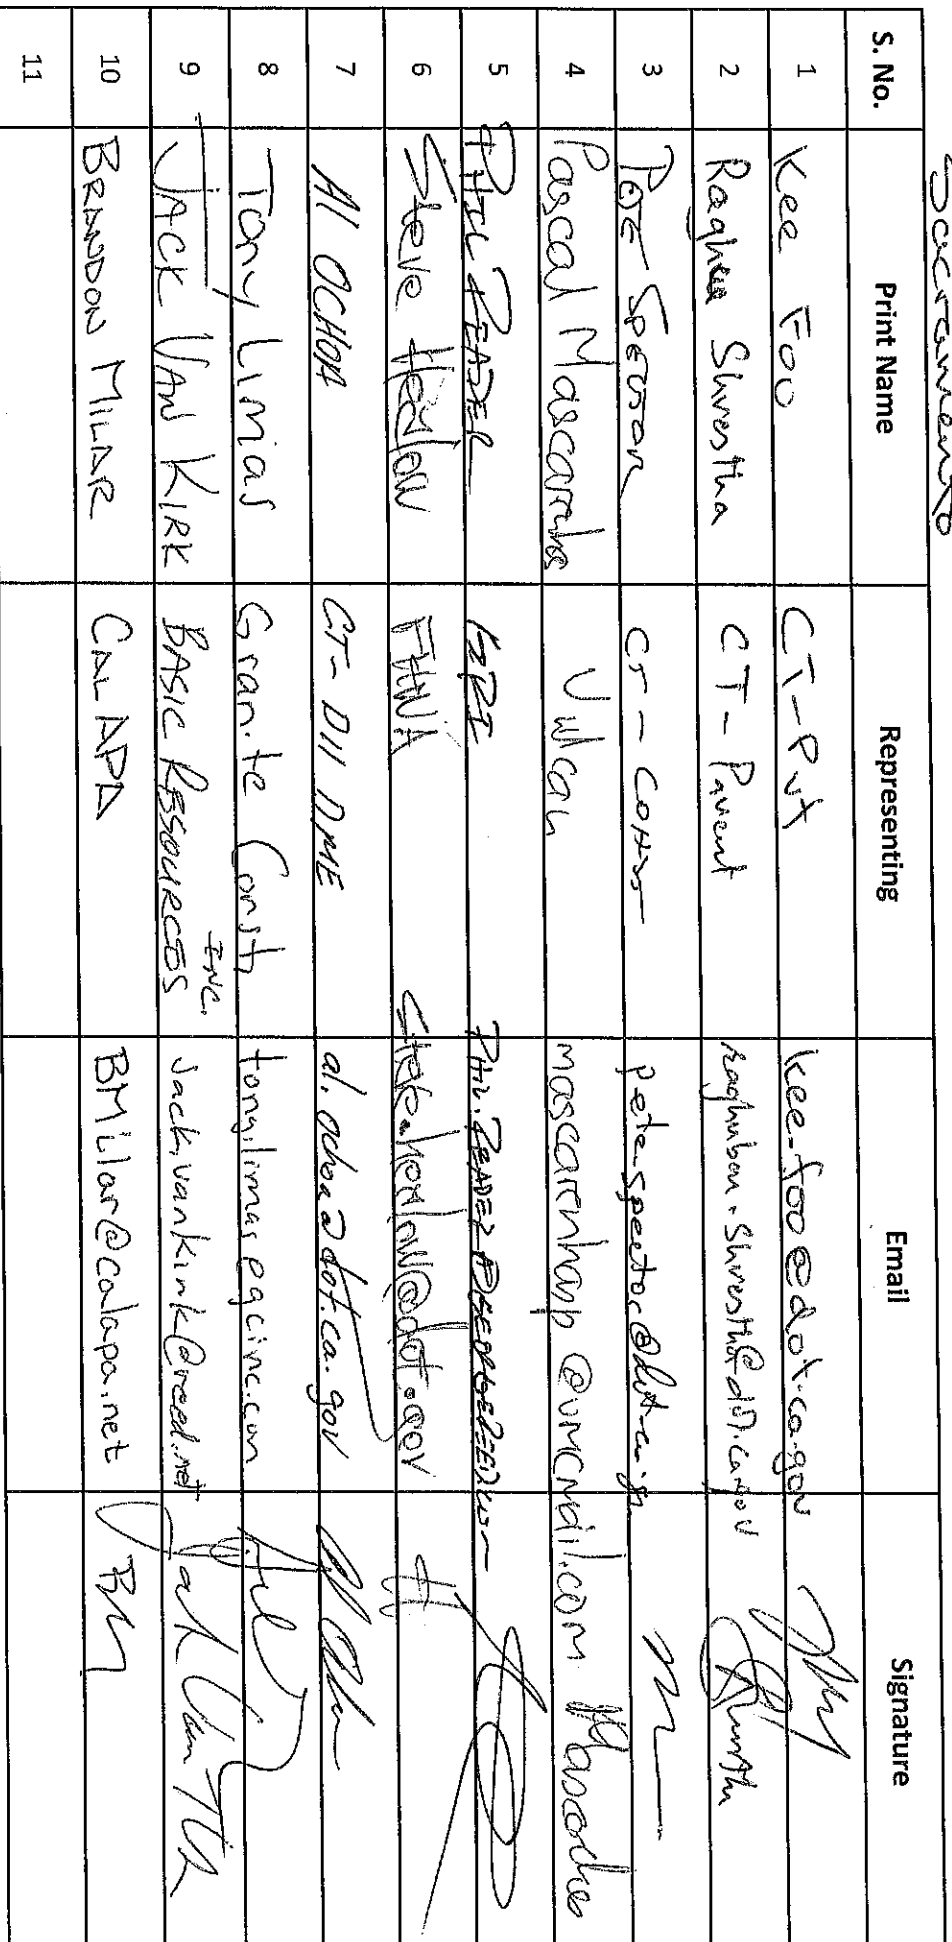 Sacramento
S. No. Print Name Representing Email Signature
1 Kee Foo CT-Pvt kee-foo@dot.ca.gov
2 Raghu Shrestha CT-Pavent raghuban.shrestha@dot.ca.gov
3 Pete Spector CT-Const peter-spector@dot.ca.gov
4 Pascal Mascarenhas Vulcan mascarenhasp@vmcmail.com
5 Phil Reader
6 Steve Healow FHWA steve.healow@dot.gov
7 Al OCHOA CT- D11 DME al.ochoa@dot.ca.gov
8 Tony Limas Granite Const tony.limas@gcinc.com
9 JACK VAN KIRK BASIC RESOURCES INC. jack.vankirk@reed.net
10 BRANDON MILAR CALAPA BMilar@calapa.net BM
11